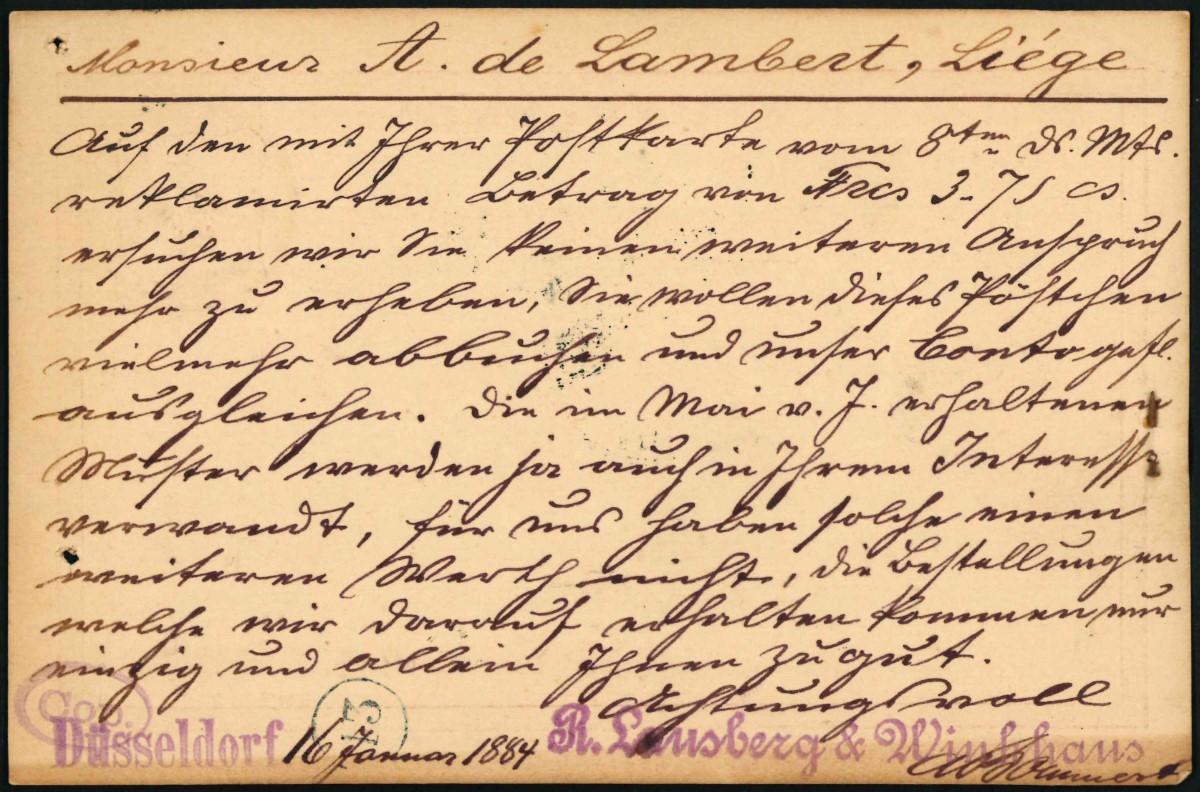 Monsieur A. de Lambert, Liége
Auf den mit Ihrer Postkarte vom 8ten ds. Mts.
reklamirten Betrag von Frcs 3.75 cs.
ersuchen wir Sie keinen weiteren Anspruch
mehr zu erheben, Sie wollen dieses Pöstchen
vielmehr abbuchen und unser Conto gefl.
ausgleichen. Die im Mai v. J. erhaltenen
Muster werden ja auch in Ihrem Interesse
verwandt, für uns haben solche einen
weiteren Werth nicht, die Bestellungen
welche wir darauf erhalten kommen nur
einzig und allein Ihnen zu gut.
Achtungsvoll
Cop.
Düsseldorf 16 Januar 1884 R. Lausberg & Winkhaus